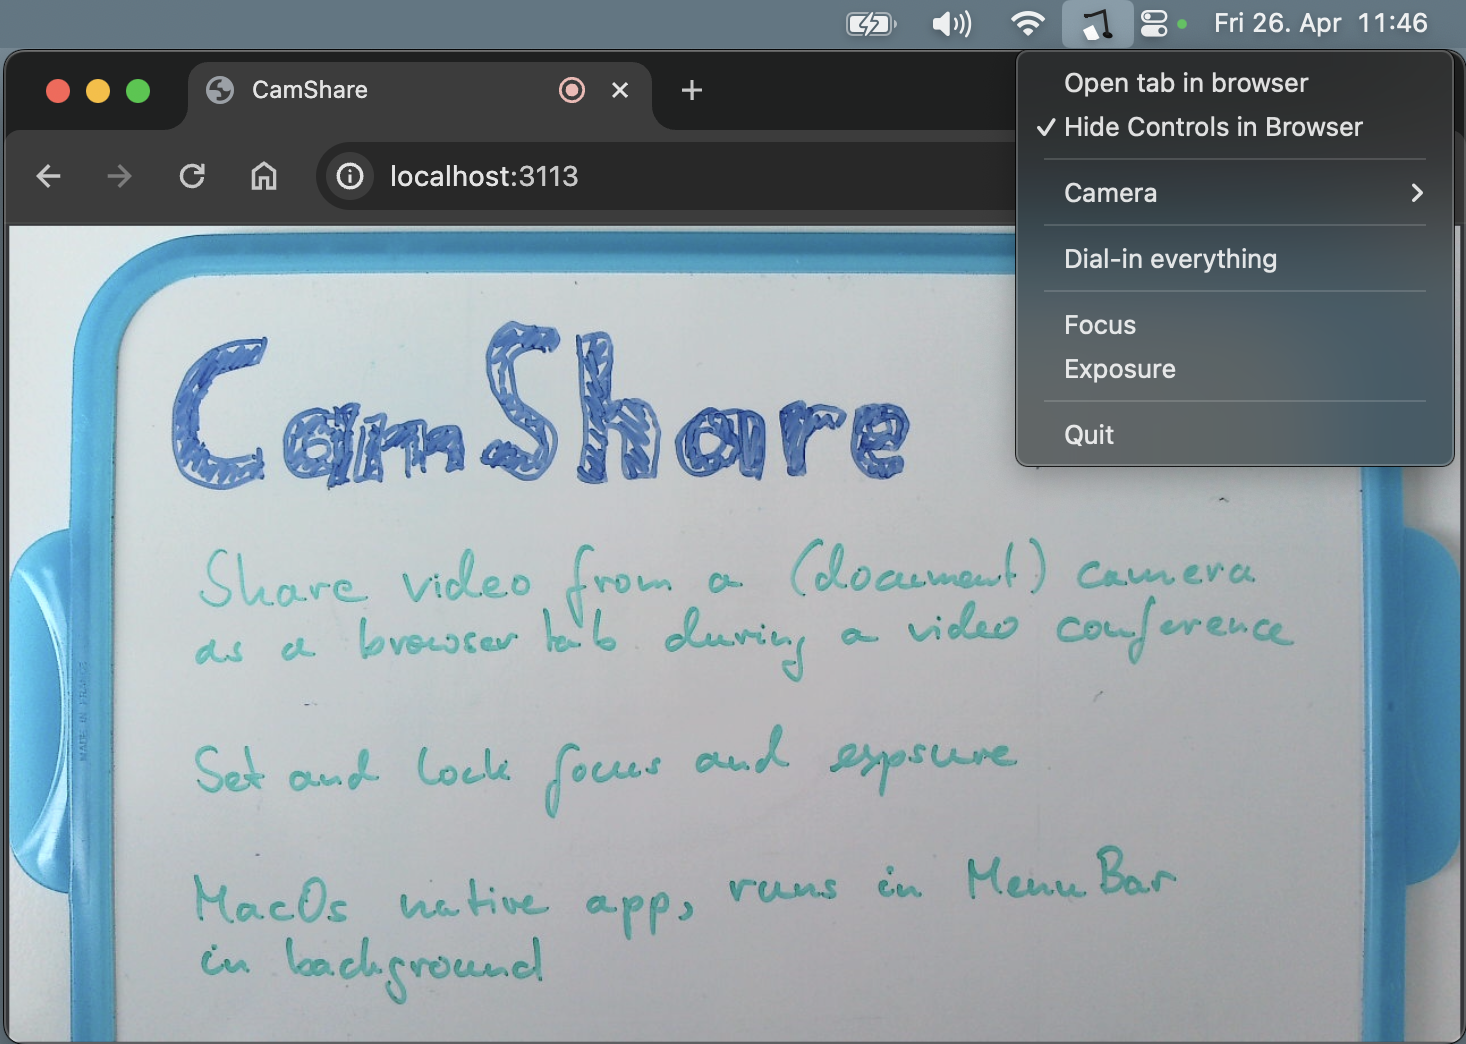 Fri 26. Apr 11:46
CamShare
localhost:3113
Open tab in browser
Hide Controls in Browser
Camera
Dial-in everything
Focus
Exposure
Quit
CamShare
Share video from a (document) camera
as a browser tab during a video conference
Set and lock focus and expsure
MacOs native app, runs in MenuBar
in background
MADE IN FRANCE